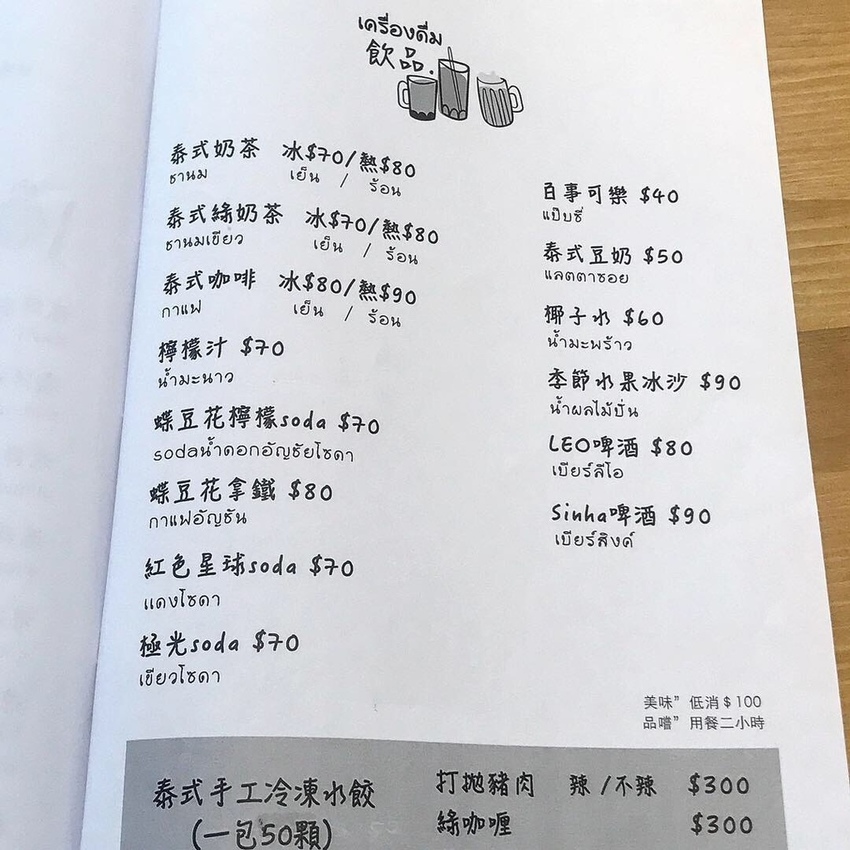 เครื่องดื่ม
飲品.
泰式奶茶 冰$70/熱$80
ชานม เย็น / ร้อน
泰式綠奶茶 冰$70/熱$80
ชานมเขียว เย็น / ร้อน
泰式咖啡 冰$80/熱$90
กาแฟ เย็น / ร้อน
檸檬汁 $70
น้ำมะนาว
蝶豆花檸檬soda $70
sodaน้ำดอกอัญชัยโซดา
蝶豆花拿鐵 $80
กาแฟอัญชัน
紅色星球soda $70
แดงโซดา
極光soda $70
เขียวโซดา
百事可樂 $40
แป๊บซี่
泰式豆奶 $50
แลตตาซอย
椰子水 $60
น้ำมะพร้าว
季節水果冰沙 $90
น้ำผลไม้ปั่น
LEO啤酒 $80
เบียร์ลีโอ
Sinha啤酒 $90
เบียร์สิงค์
美味” 低消$100
品嚐” 用餐二小時
泰式手工冷凍水餃
(一包50顆)
打拋豬肉 辣/不辣 $300
綠咖喱 $300